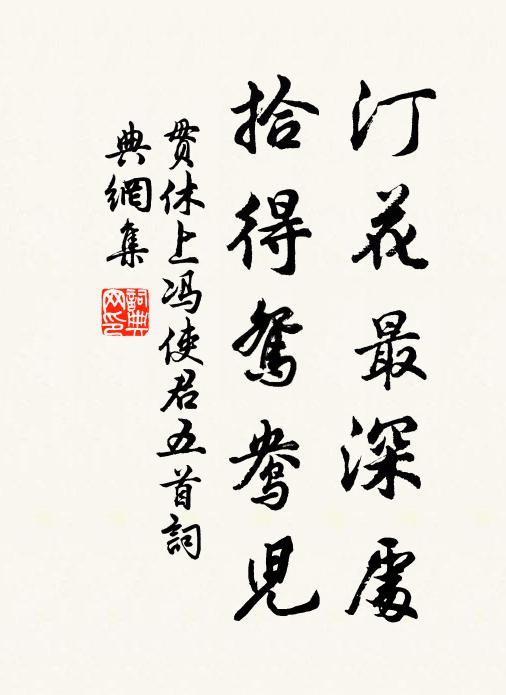 汀花最深處
拾得鴛鴦兒
貫休上冯使君五首詞
典網集
詞典網印